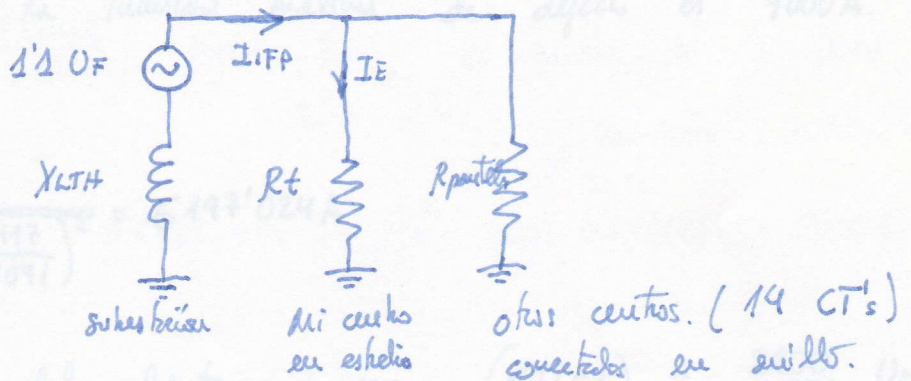 1'1 UF
I1FP
IE
XLTH
Rt
Rpantalla
subestación
Mi centro
en estudio
otros centros. (14 CT's)
conectados en anillo.